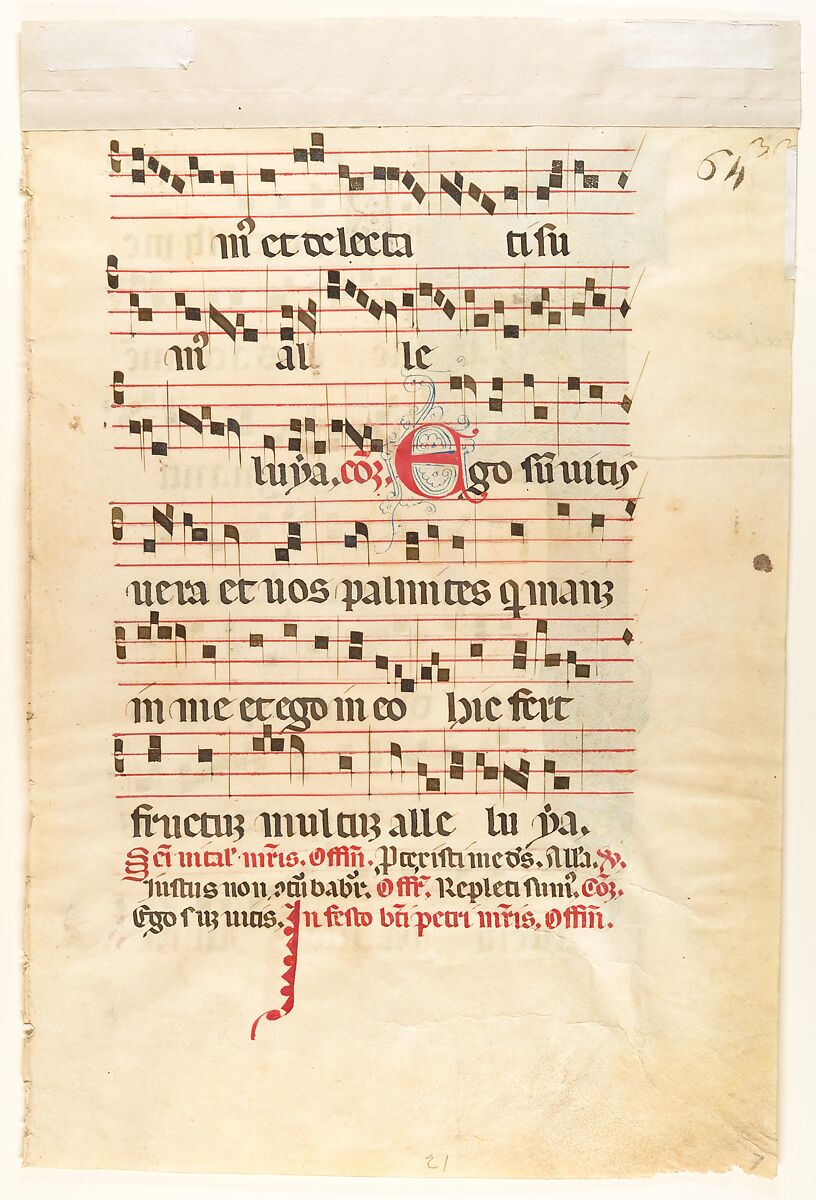 64 32
m⁹ et delecta ti su
m⁹ al le
luya. co͞ꝫ. Ego su͞ uitis
uera et uos palmites q manꝫ
in me et ego in eo hic fert
fructuꝫ multuꝫ alle lu ya.
Sc͞i uital' mr͞is. Offm͞. Protexisti me ds͞. All'a. ꝟ.
Iustus non ꝯtu͞babr͞. Offr͞. Repleti sum⁹. Co͞ꝫ.
Ego suꝫ uitis. In festo bt͞i petri mr͞is. Offm͞.
21